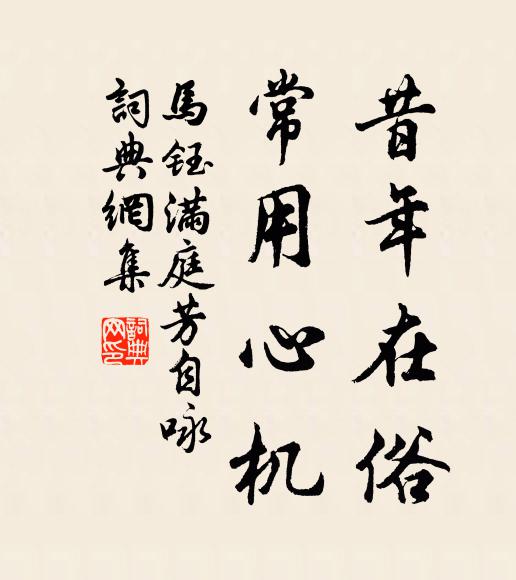 昔年在俗
常用心机
馬鈺滿庭芳自咏
詞典網集
詞典網印